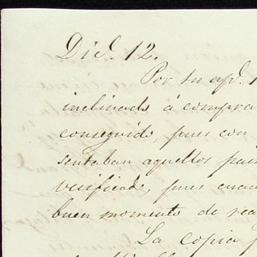 Dic.e 12.
Por tu apd. 1
inclinado á compra
conseguido pues con
sentaban aquellos pai
verificado, pues cuan
buen momento de rea
La copia p